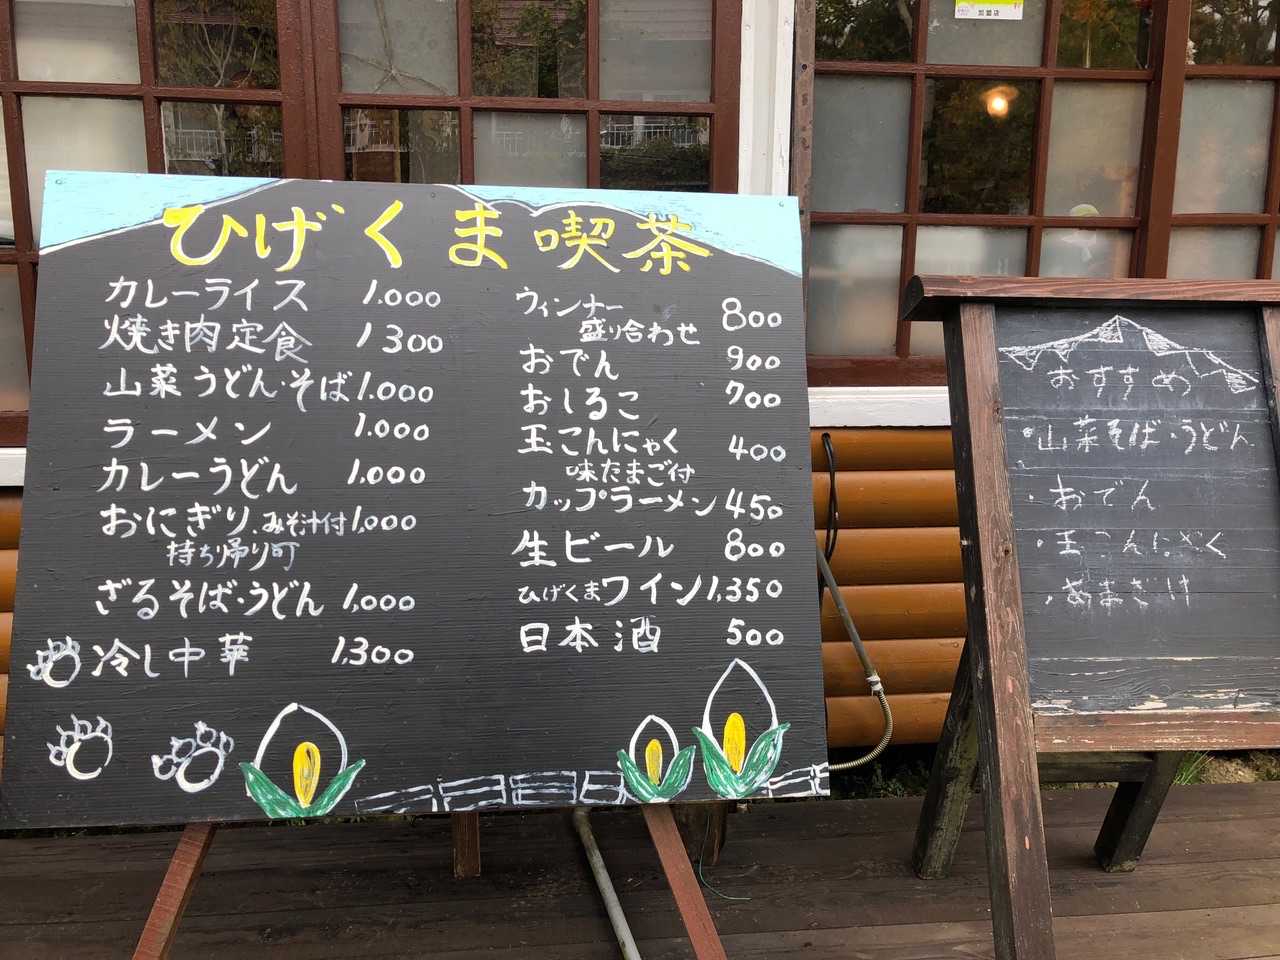 加盟店
ひげくま喫茶
カレーライス 1.000
焼き肉定食 1300
山菜うどん・そば 1.000
ラーメン 1.000
カレーうどん 1.000
おにぎり.みそ汁付 1,000
持ち帰り可
ざるそば・うどん 1,000
冷し中華 1,300
ウィンナー
盛り合わせ 800
おでん 900
おしるこ 700
玉こんにゃく 400
味たまご付
カップラーメン 450
生ビール 800
ひげくまワイン 1,350
日本酒 500
おすすめ
・山菜そば・うどん
・おでん
・玉こんにゃく
・あまざけ